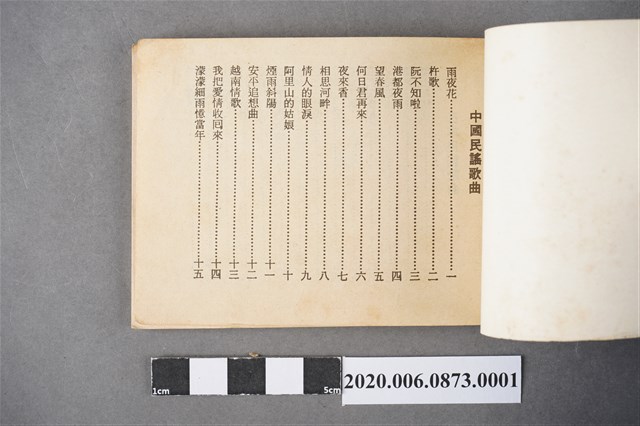 中國民謠歌曲
雨夜花………一
杵歌………二
阮不知啦………三
港都夜雨………四
望春風………五
何日君再來………六
夜來香………七
相思河畔………八
情人的眼淚………九
阿里山的姑娘………十
煙雨斜陽………十一
安平追想曲………十二
越南情歌………十三
我把愛情收囘來………十四
濛濛細雨憶當年………十五
1cm 5cm
2020.006.0873.0001